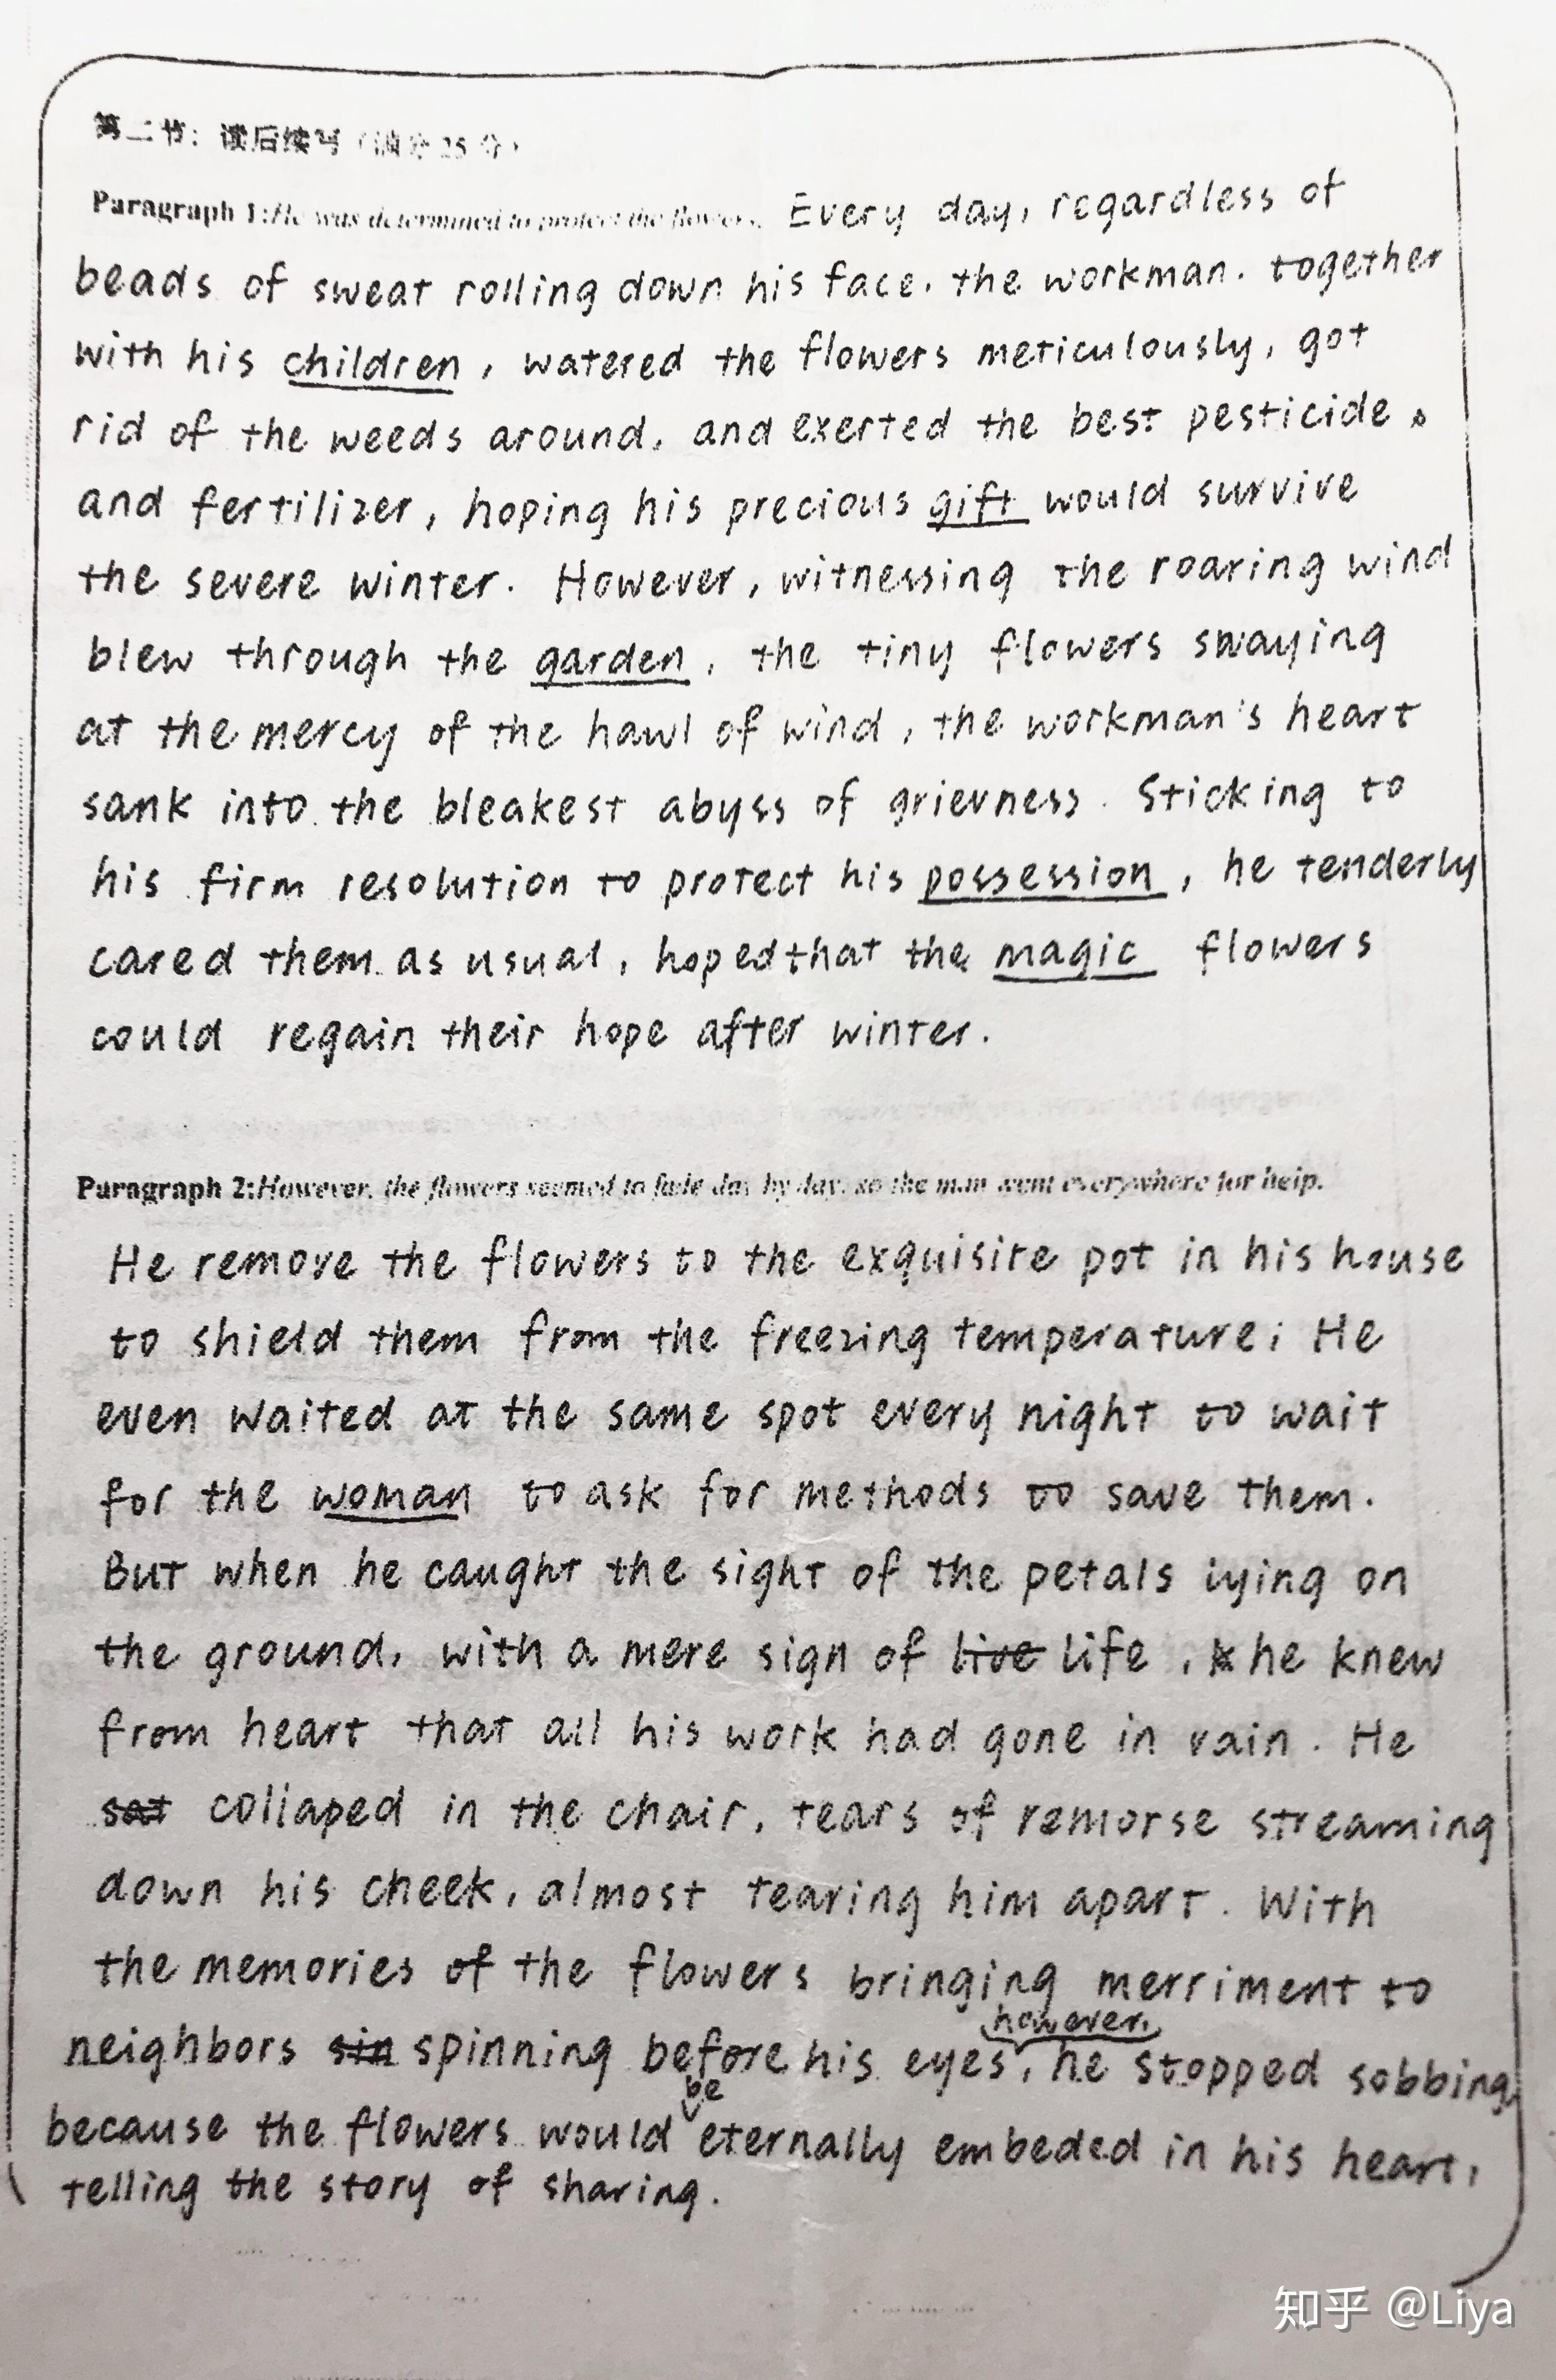 第二节：读后续写（满分25分）
Paragraph 1:He was determined to protect the flowers. Every day, regardless of
beads of sweat rolling down his face, the workman. together
with his children, watered the flowers meticulously, got
rid of the weeds around, and exerted the best pesticide
and fertilizer, hoping his precious gift would survive
the severe winter. However, witnessing the roaring wind
blew through the garden, the tiny flowers swaying
at the mercy of the hawl of wind, the workman's heart
sank into the bleakest abyss of grievness. Sticking to
his firm resolution to protect his possession, he tenderly
cared them as usual, hoped that the magic flowers
could regain their hope after winter.
Paragraph 2:However, the flowers seemed to fade day by day, so the man went everywhere for help.
He remove the flowers to the exquisite pot in his house
to shield them from the freezing temperature; He
even waited at the same spot every night to wait
for the woman to ask for methods to save them.
But when he caught the sight of the petals lying on
the ground, with a mere sign of live life, he knew
from heart that all his work had gone in vain. He
sat collaped in the chair, tears of remorse streaming
down his cheek, almost tearing him apart. With
the memories of the flowers bringing merriment to
neighbors sin spinning before his eyes, however, he stopped sobbing,
because the flowers would be eternally embeded in his heart,
telling the story of sharing.
知乎 @Liya